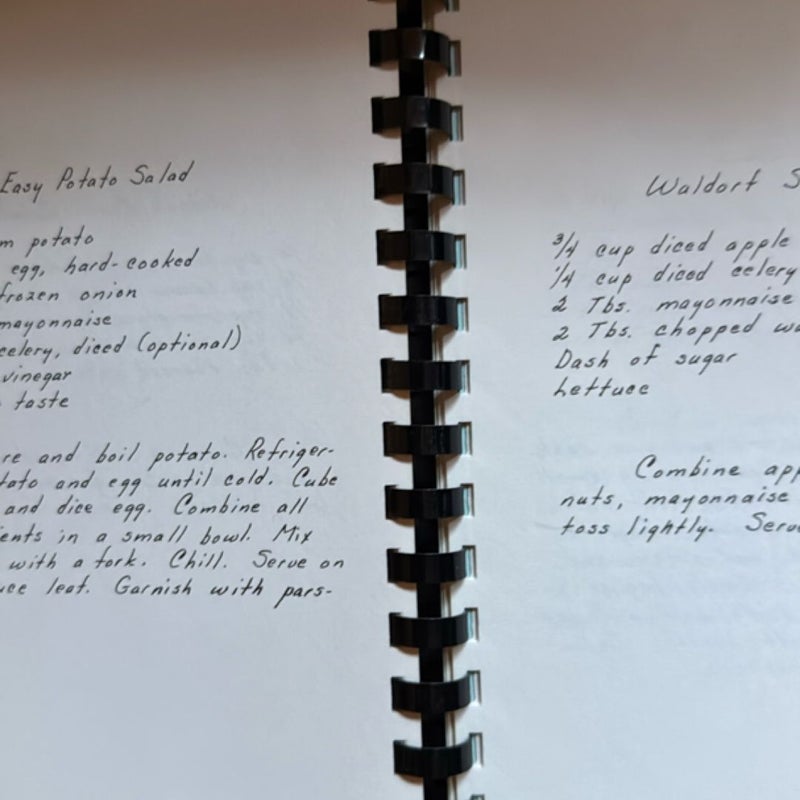 Easy Potato Salad
m potato
egg, hard-cooked
frozen onion
mayonnaise
celery, diced (optional)
vinegar
taste
re and boil potato. Refriger-
tato and egg until cold. Cube
and dice egg. Combine all
ents in a small bowl. Mix
with a fork. Chill. Serve on
uce leaf. Garnish with pars-
Waldorf S
3/4 cup diced apple
1/4 cup diced celery
2 Tbs. mayonnaise
2 Tbs. chopped wa
Dash of sugar
Lettuce
Combine app
nuts, mayonnaise
toss lightly. Serve